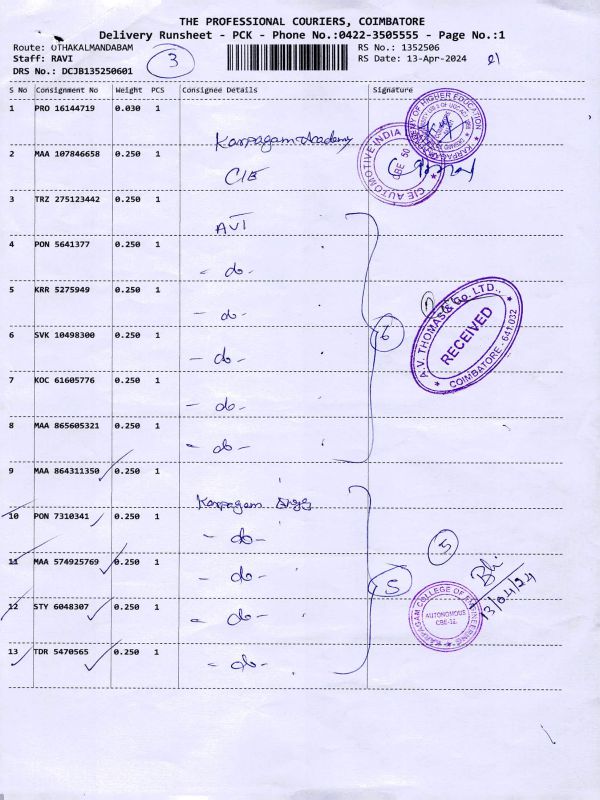 THE PROFESSIONAL COURIERS, COIMBATORE
Delivery Runsheet - PCK - Phone No.:0422-3505555 - Page No.:1
Route: OTHAKALMANDABAM
Staff: RAVI
DRS No.: DCJB135250601
3
RS No.: 1352506
RS Date: 13-Apr-2024
S No Consignment No Weight PCS Consignee Details Signature
1 PRO 16144719 0.030 1 Karpagam Academy
2 MAA 107846658 0.250 1 CIE
3 TRZ 275123442 0.250 1 AVT
4 PON 5641377 0.250 1 - do -
5 KRR 5275949 0.250 1 - do -
6 SVK 10498300 0.250 1 - do -
7 KOC 61605776 0.250 1 - do -
8 MAA 865605321 0.250 1 - do -
9 MAA 864311350 0.250 1 Karpagam Engg
10 PON 7310341 0.250 1 - do -
11 MAA 574925769 0.250 1 - do -
12 STY 6048307 0.250 1 - do -
13 TDR 5470565 0.250 1 - do -
OF HIGHER EDUCATION
CIE AUTOMOTIVE INDIA
CBE
6
A.V. THOMAS & Co. LTD.,
RECEIVED
COIMBATORE - 641 032
5
5
13/04/24
KARPAGAM COLLEGE OF ENGINEERING
AUTONOMOUS
CBE-32.